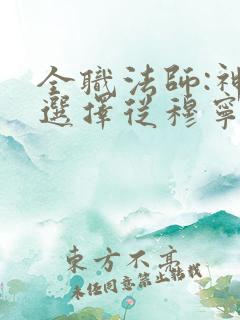 全職法師:神
選擇從穆寧
東方不亮
未任同意禁止轉載